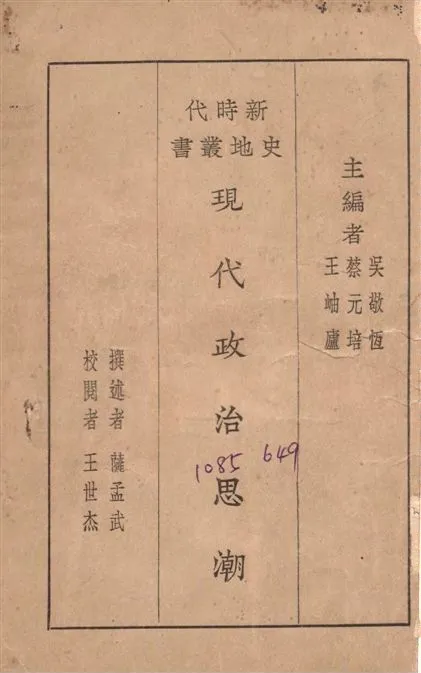 主編者
吳敬恆
蔡元培
王岫廬
新時代
史地叢書
現代政治思潮
649
1085
撰述者 薩孟武
校閱者 王世杰